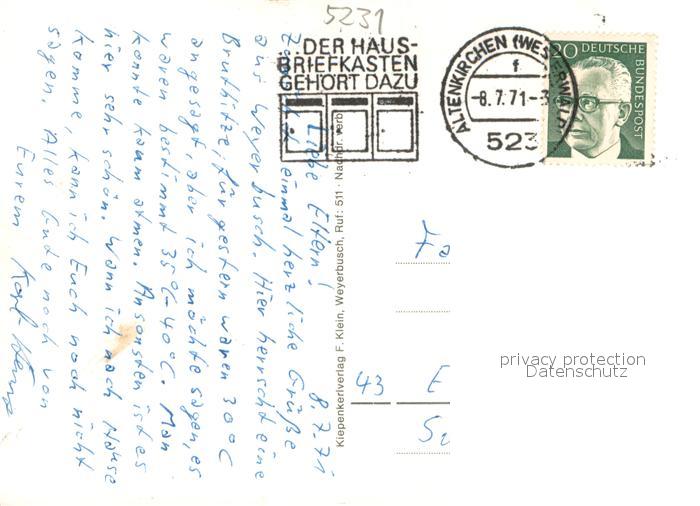 5231
DER HAUS-
BRIEFKASTEN
GEHÖRT DAZU
ALTENKIRCHEN (WESTERWALD)
f
-8.7.71-
523
20 DEUTSCHE
BUNDESPOST
8.7.71
Liebe Eltern!
einmal herzliche Grüße
aus Weyerbusch. Hier herrscht eine
Bruthitze, für gestern waren 30°C
angesagt, aber ich möchte sagen, es
waren bestimmt 35°C-40°C. Man
konnte kaum atmen. Ansonsten ist es
hier sehr schön. Wann ich nach Hause
komme, kann ich Euch noch nicht
sagen. Alles Gute noch von
Eurem
Kiepenkerlverlag F. Klein, Weyerbusch, Ruf: 511 · Nachdr. verb.
Fa
43 E
privacy protection
Datenschutz